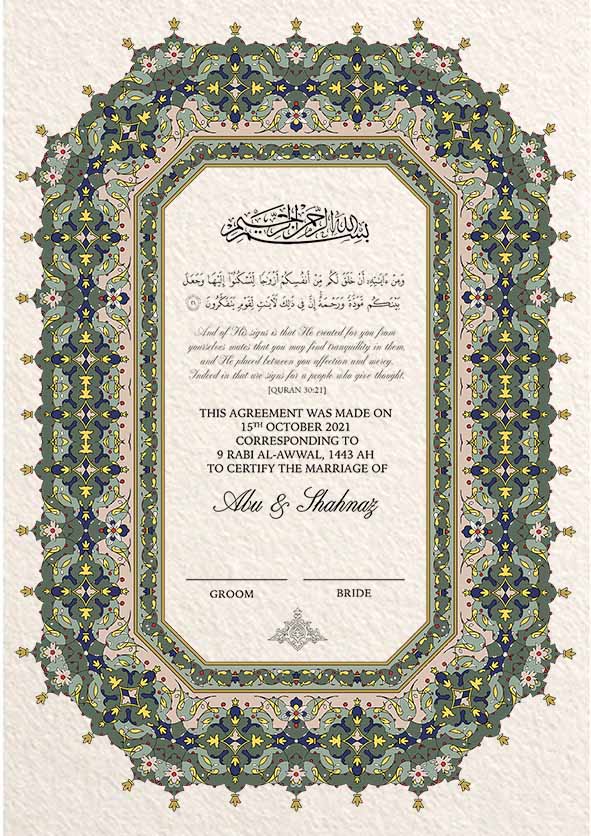 بسم الله الرحمن الرحيم
وَمِنْ ءَايَـٰتِهِۦٓ أَنْ خَلَقَ لَكُم مِّنْ أَنفُسِكُمْ أَزْوَٰجًا لِّتَسْكُنُوٓا۟ إِلَيْهَا وَجَعَلَ
بَيْنَكُم مَّوَدَّةً وَرَحْمَةً إِنَّ فِى ذَٰلِكَ لَـَٔايَـٰتٍ لِّقَوْمٍ يَتَفَكَّرُونَ ٢١
And of His signs is that He created for you from
yourselves mates that you may find tranquillity in them,
and He placed between you affection and mercy.
Indeed in that are signs for a people who give thought.
[QURAN 30:21]
THIS AGREEMENT WAS MADE ON
15TH OCTOBER 2021
CORRESPONDING TO
9 RABI AL-AWWAL, 1443 AH
TO CERTIFY THE MARRIAGE OF
Abu & Shahnaz
GROOM BRIDE